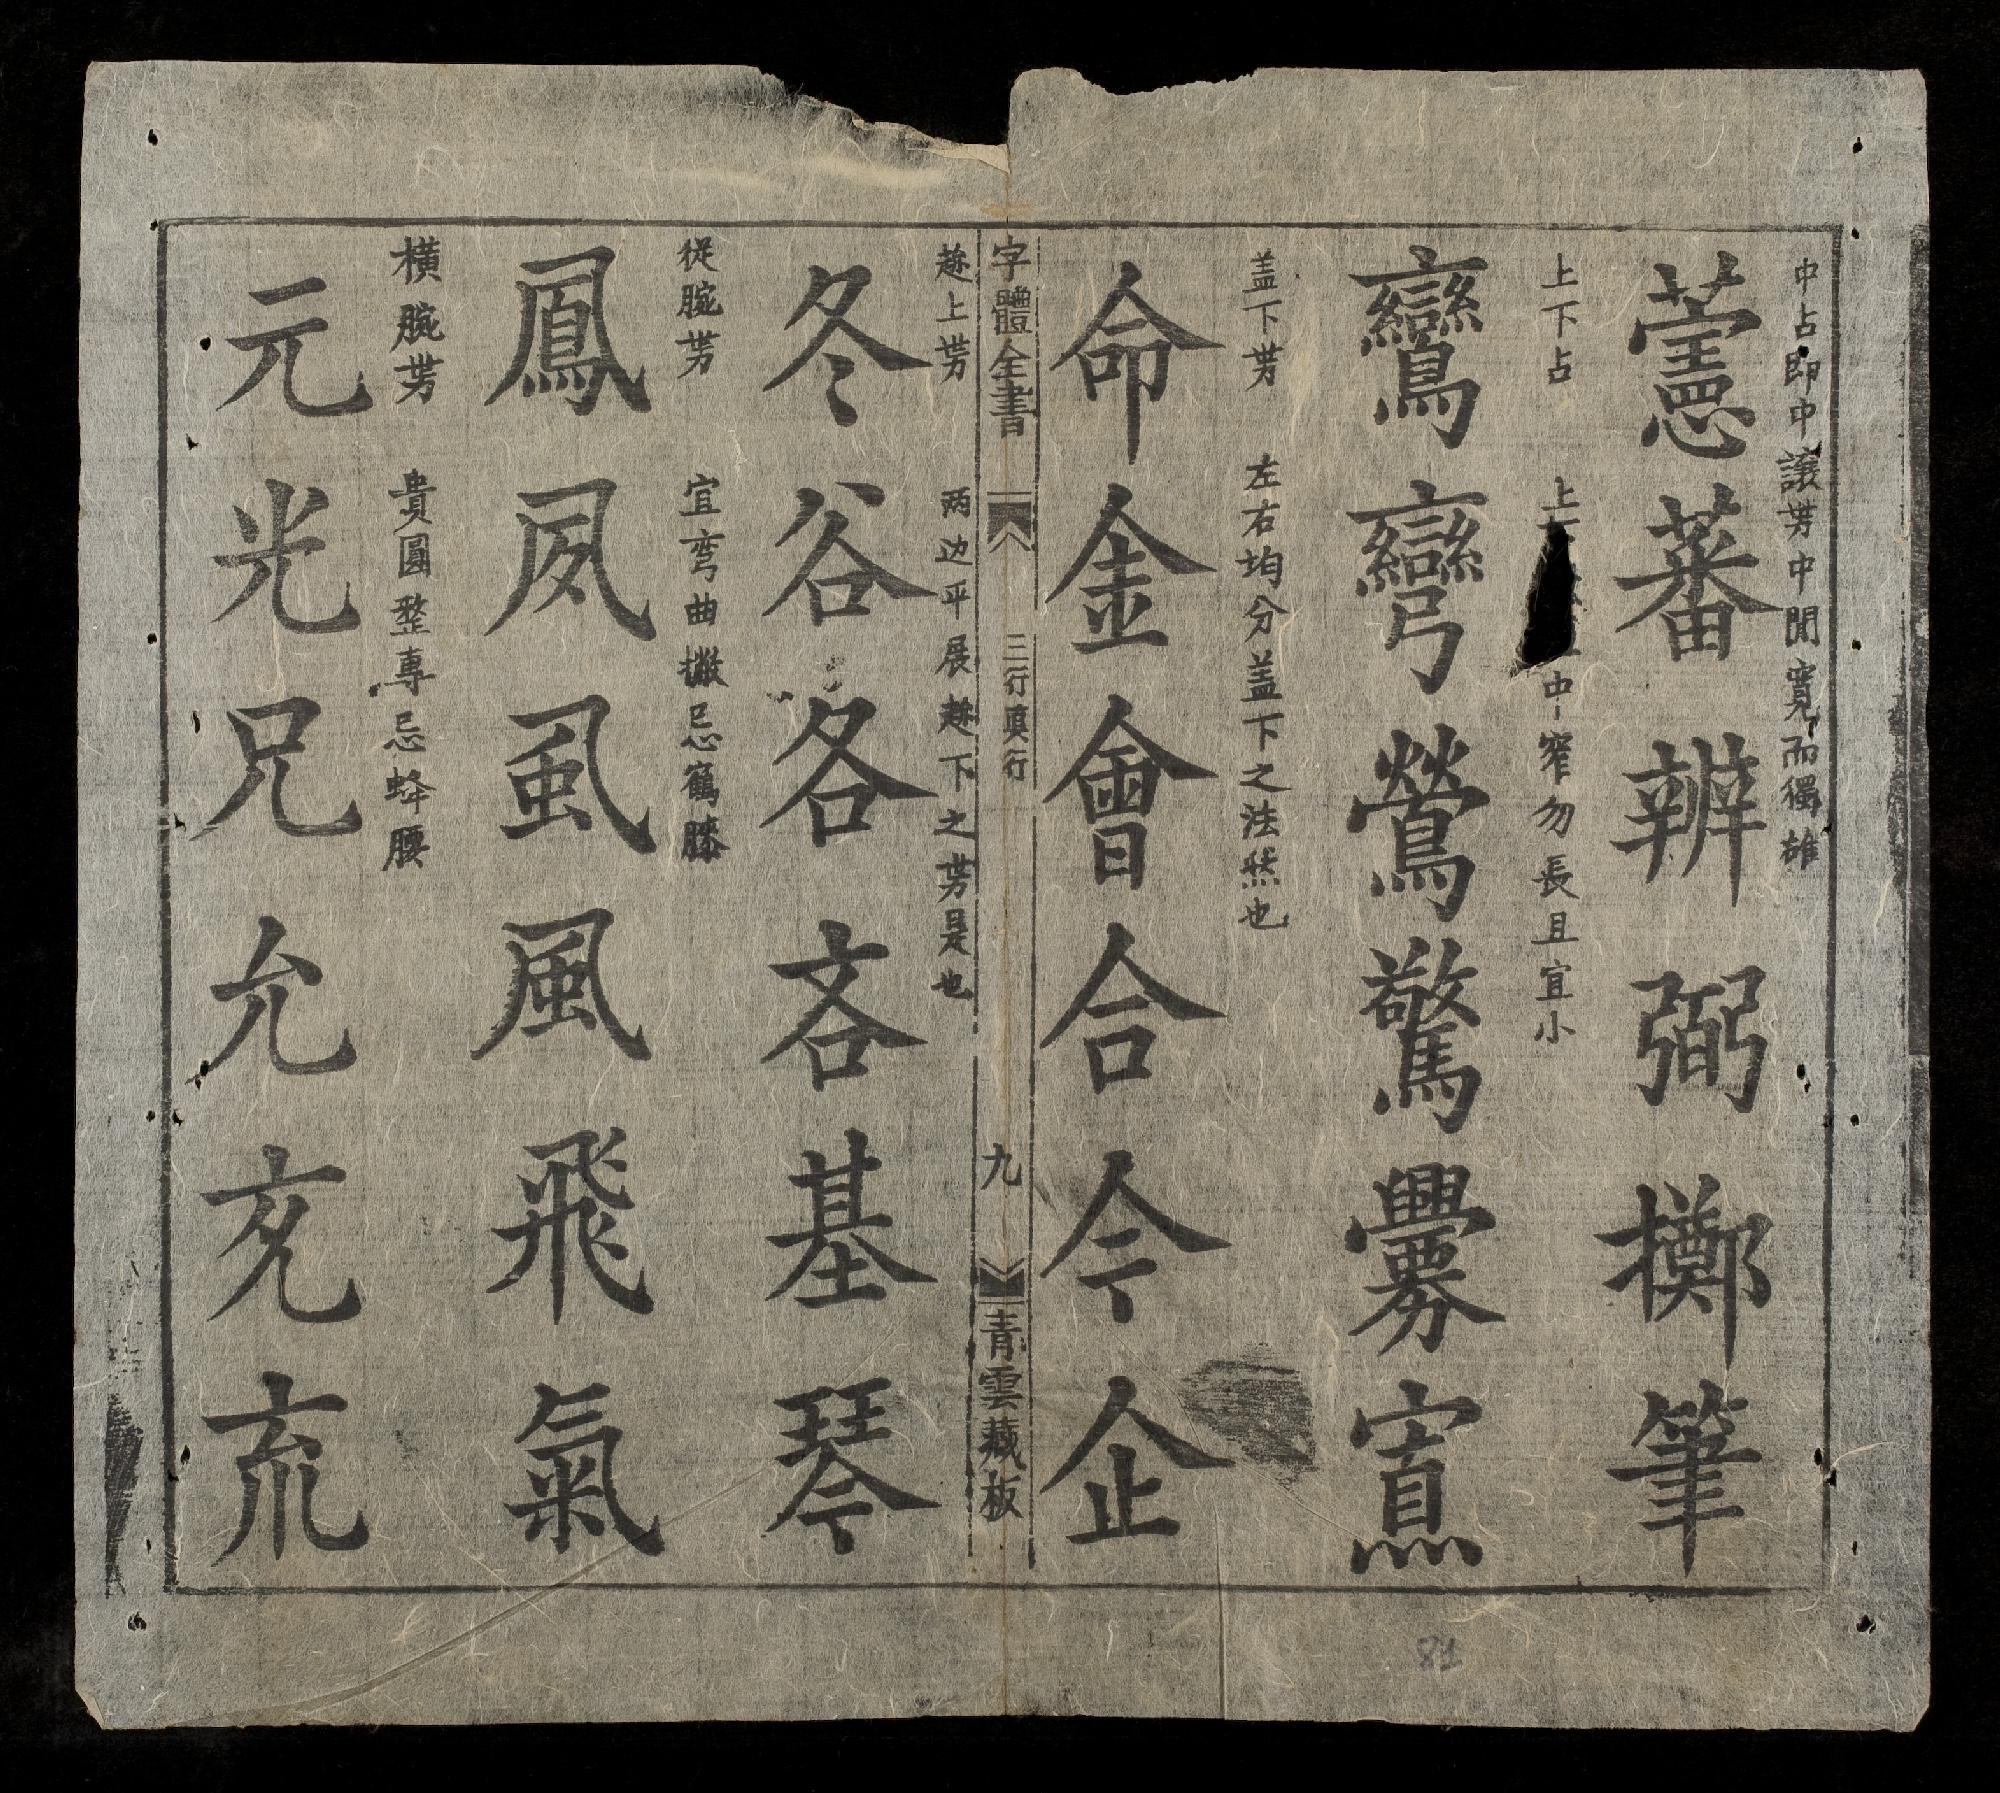 中占即中讓芳中間寬而獨雄
藼蕃辨弼擲筆
上下占
上 中窄勿長且宜小
鸞彎鶯驚釁寡
盖下芳
左右均分盖下之法然也
命金會合令企
字體全書
三行真行
九
青雲藏板
趂上芳
两边平展趂下之芳是也
冬谷各吝基琴
從腕芳
宜弯曲撇忌鶴膝
鳳夙虱風飛氣
横腕芳
貴圓整專忌蜂腰
元光兄允充㐬
81